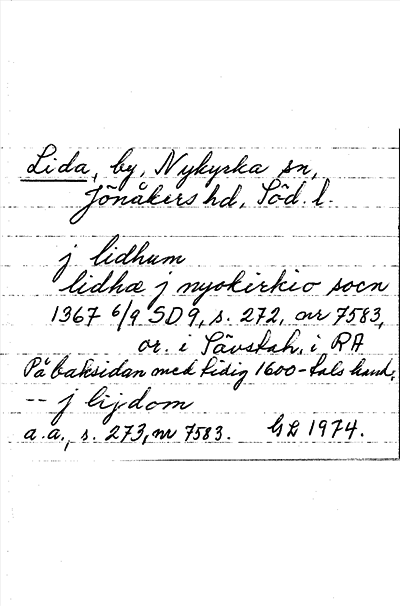 Lida, by, Nykyrka sn,
Jönåkers hd, Söd. l.
j lidhum
lidhæ j nyokirkio socn
1367 6/9 SD 9, s. 272, nr 7583,
or. i Sävstah. i RA
På baksidan med tidig 1600-tals hand,
-- j lijdom
a.a., s. 273, nr 7583. GL 1974.